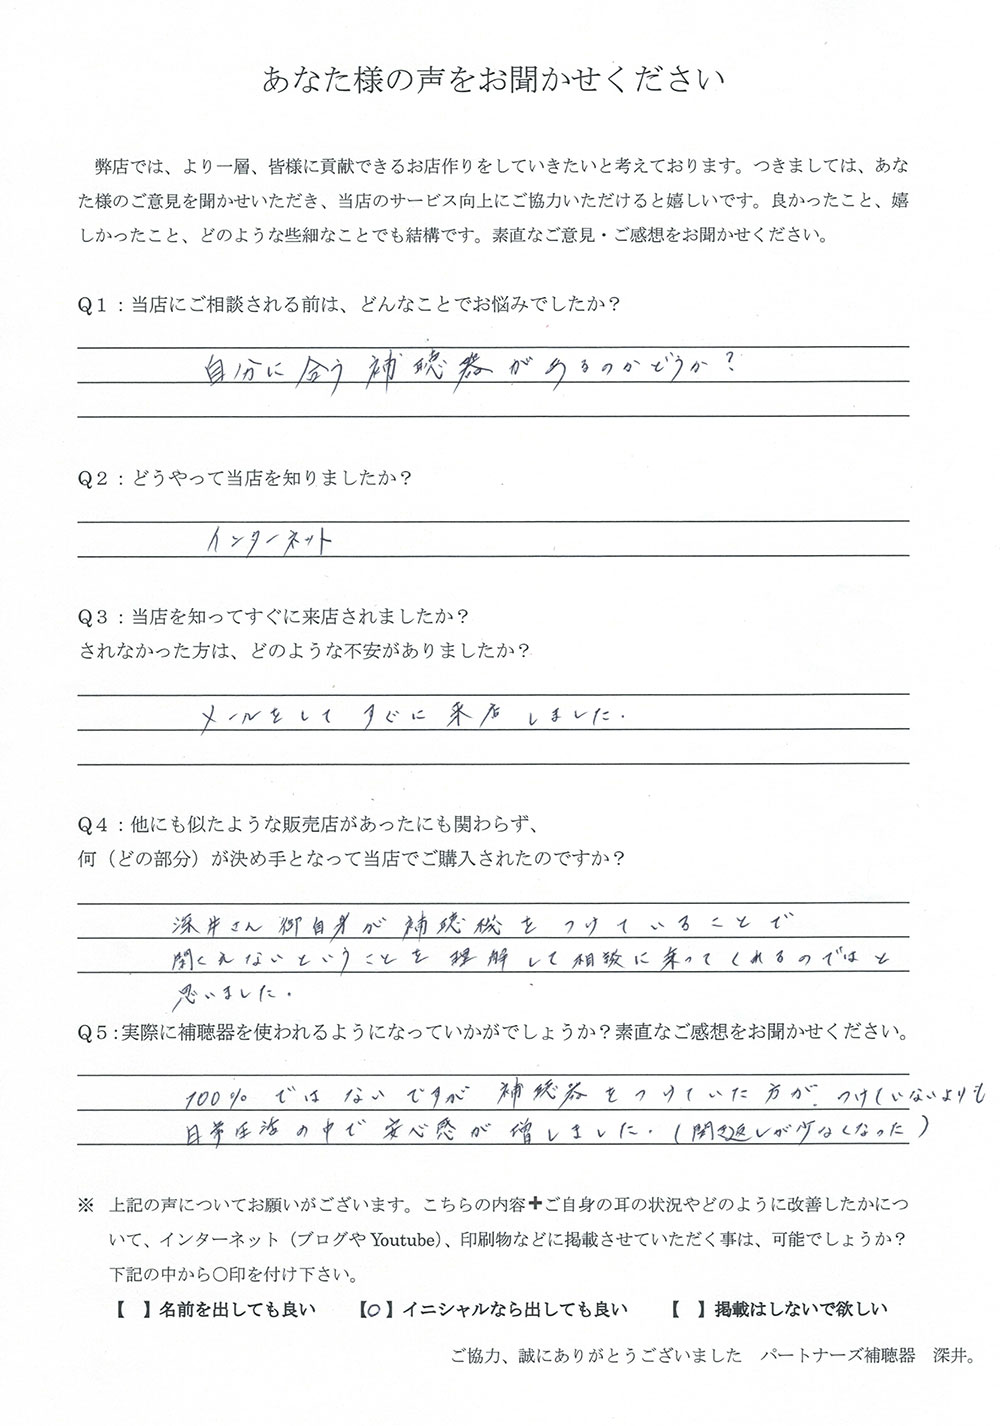 あなた様の声をお聞かせください
弊店では、より一層、皆様に貢献できるお店作りをしていきたいと考えております。つきましては、あな
た様のご意見を聞かせいただき、当店のサービス向上にご協力いただけると嬉しいです。良かったこと、嬉
しかったこと、どのような些細なことでも結構です。素直なご意見・ご感想をお聞かせください。
Q1:当店にご相談される前は、どんなことでお悩みでしたか?
自分に合う補聴器があるのかどうか?
Q2:どうやって当店を知りましたか?
インターネット
Q3:当店を知ってすぐに来店されましたか?
されなかった方は、どのような不安がありましたか?
メールをしてすぐに来店しました.
Q4:他にも似たような販売店があったにも関わらず、
何(どの部分)が決め手となって当店でご購入されたのですか?
深井さん御自身が補聴機をつけていることで
聞くえないということを理解して相談に乗ってくれるのではと
思いました.
Q5:実際に補聴器を使われるようになっていかがでしょうか?素直なご感想をお聞かせください。
100%ではないですが 補聴器をつけていた方が、つけていないよりも
日常生活の中で安心感が増しました.(聞き返しが少なくなった)
※ 上記の声についてお願いがございます。こちらの内容✚ご自身の耳の状況やどのように改善したかにつ
いて、インターネット(ブログや Youtube)、印刷物などに掲載させていただく事は、可能でしょうか?
下記の中から〇印を付け下さい。
【 】名前を出しても良い 【〇】イニシャルなら出しても良い 【 】掲載はしないで欲しい
ご協力、誠にありがとうございました パートナーズ補聴器 深井。